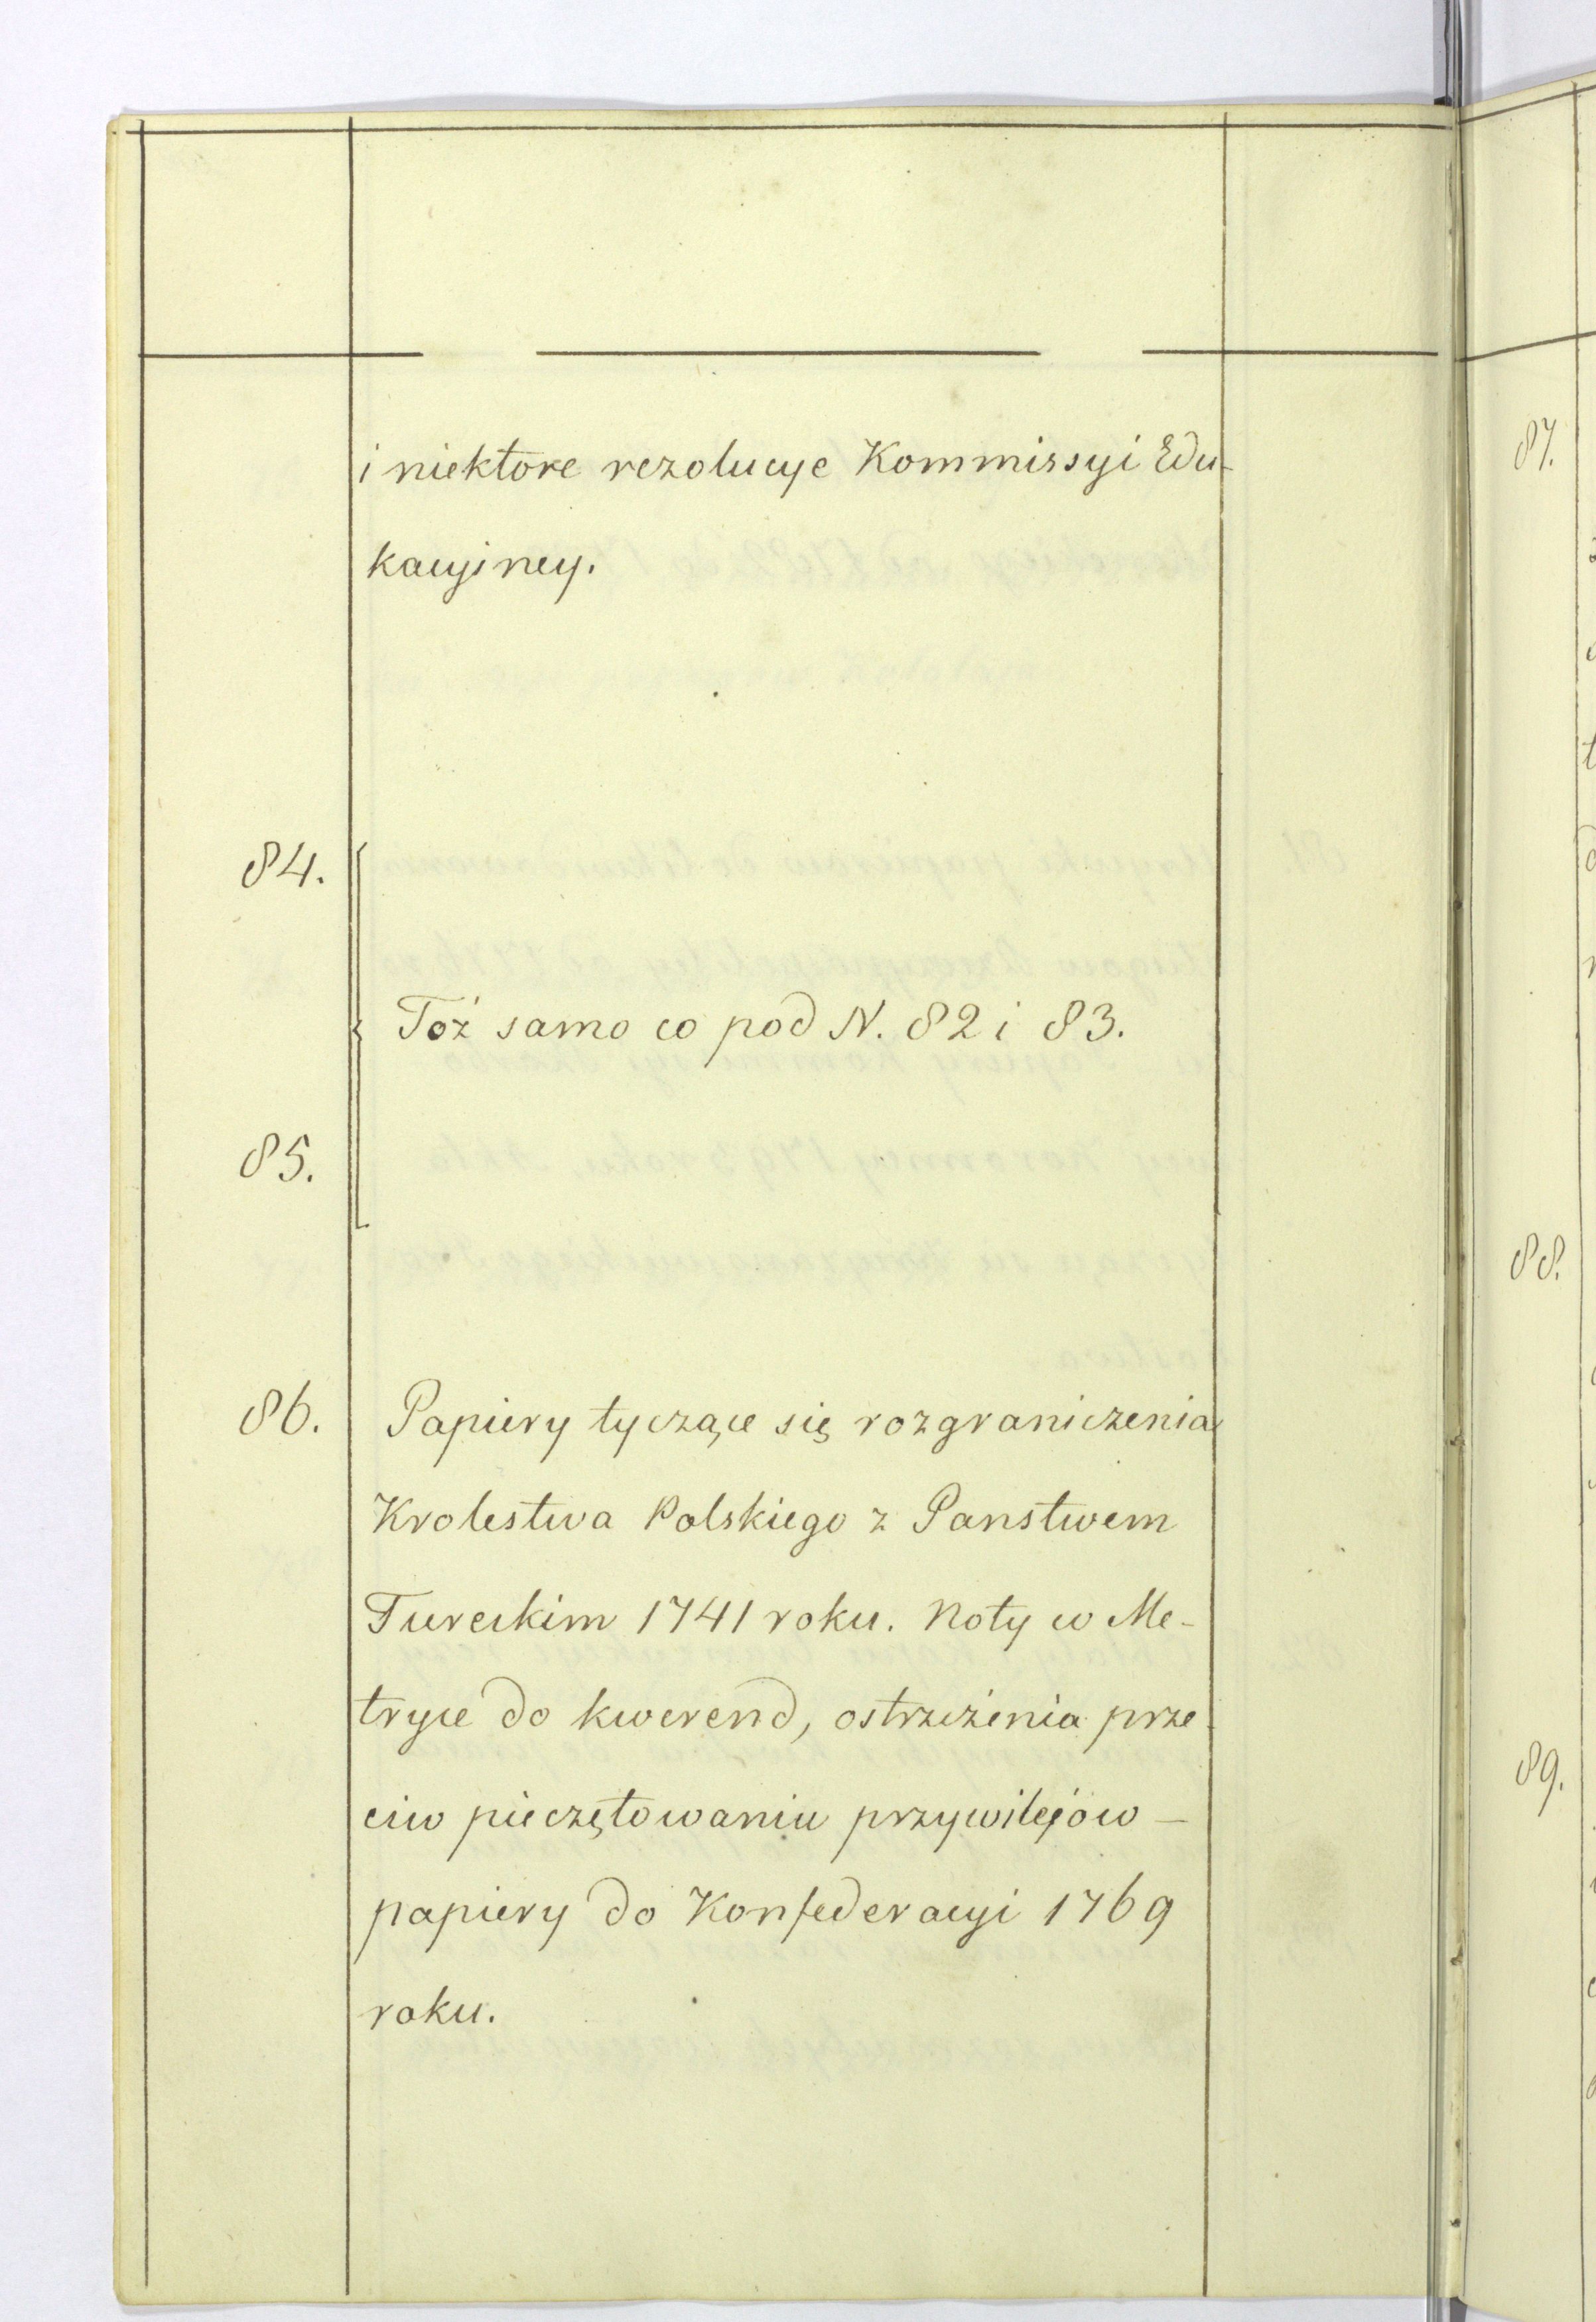 i niektore rezolucye Kommissyi Edu-
kacyiney.
84.
Toż samo co pod N. 82 i 83.
85.
86. Papiery tyczące się rozgraniczenia
Krolestwa Polskiego z Panstwem
Tureckim 1741 roku. Noty w Me-
tryce do kwerend, ostrzeżenia prze-
ciw pieczętowaniu przywilejow —
papiery do Konfederacyi 1769
roku.
87.
88.
89.